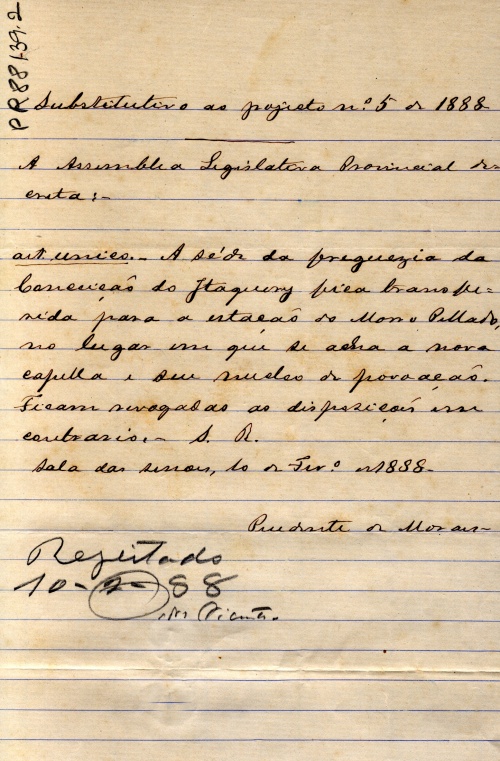 PR88139.2
Substitutivo ao projecto nº 5 de 1888
A Assemblea Legislativa Provincial de-
creta:-
art. unico.- A séde da freguezia da
Conceicaõ do Itaquery fica transfe-
rida para a estacaõ do Morro Pellado,
no lugar em que se acha a nova
capella e seu nucleo de povoacaõ.
Ficam revogadas as disposiçoẽs em
contrario.- S. R.
Sala das sessoes, 10 de Fevº de 1888-
Prudente de Moraes-
Regeitado
10-2-88
Vicente.